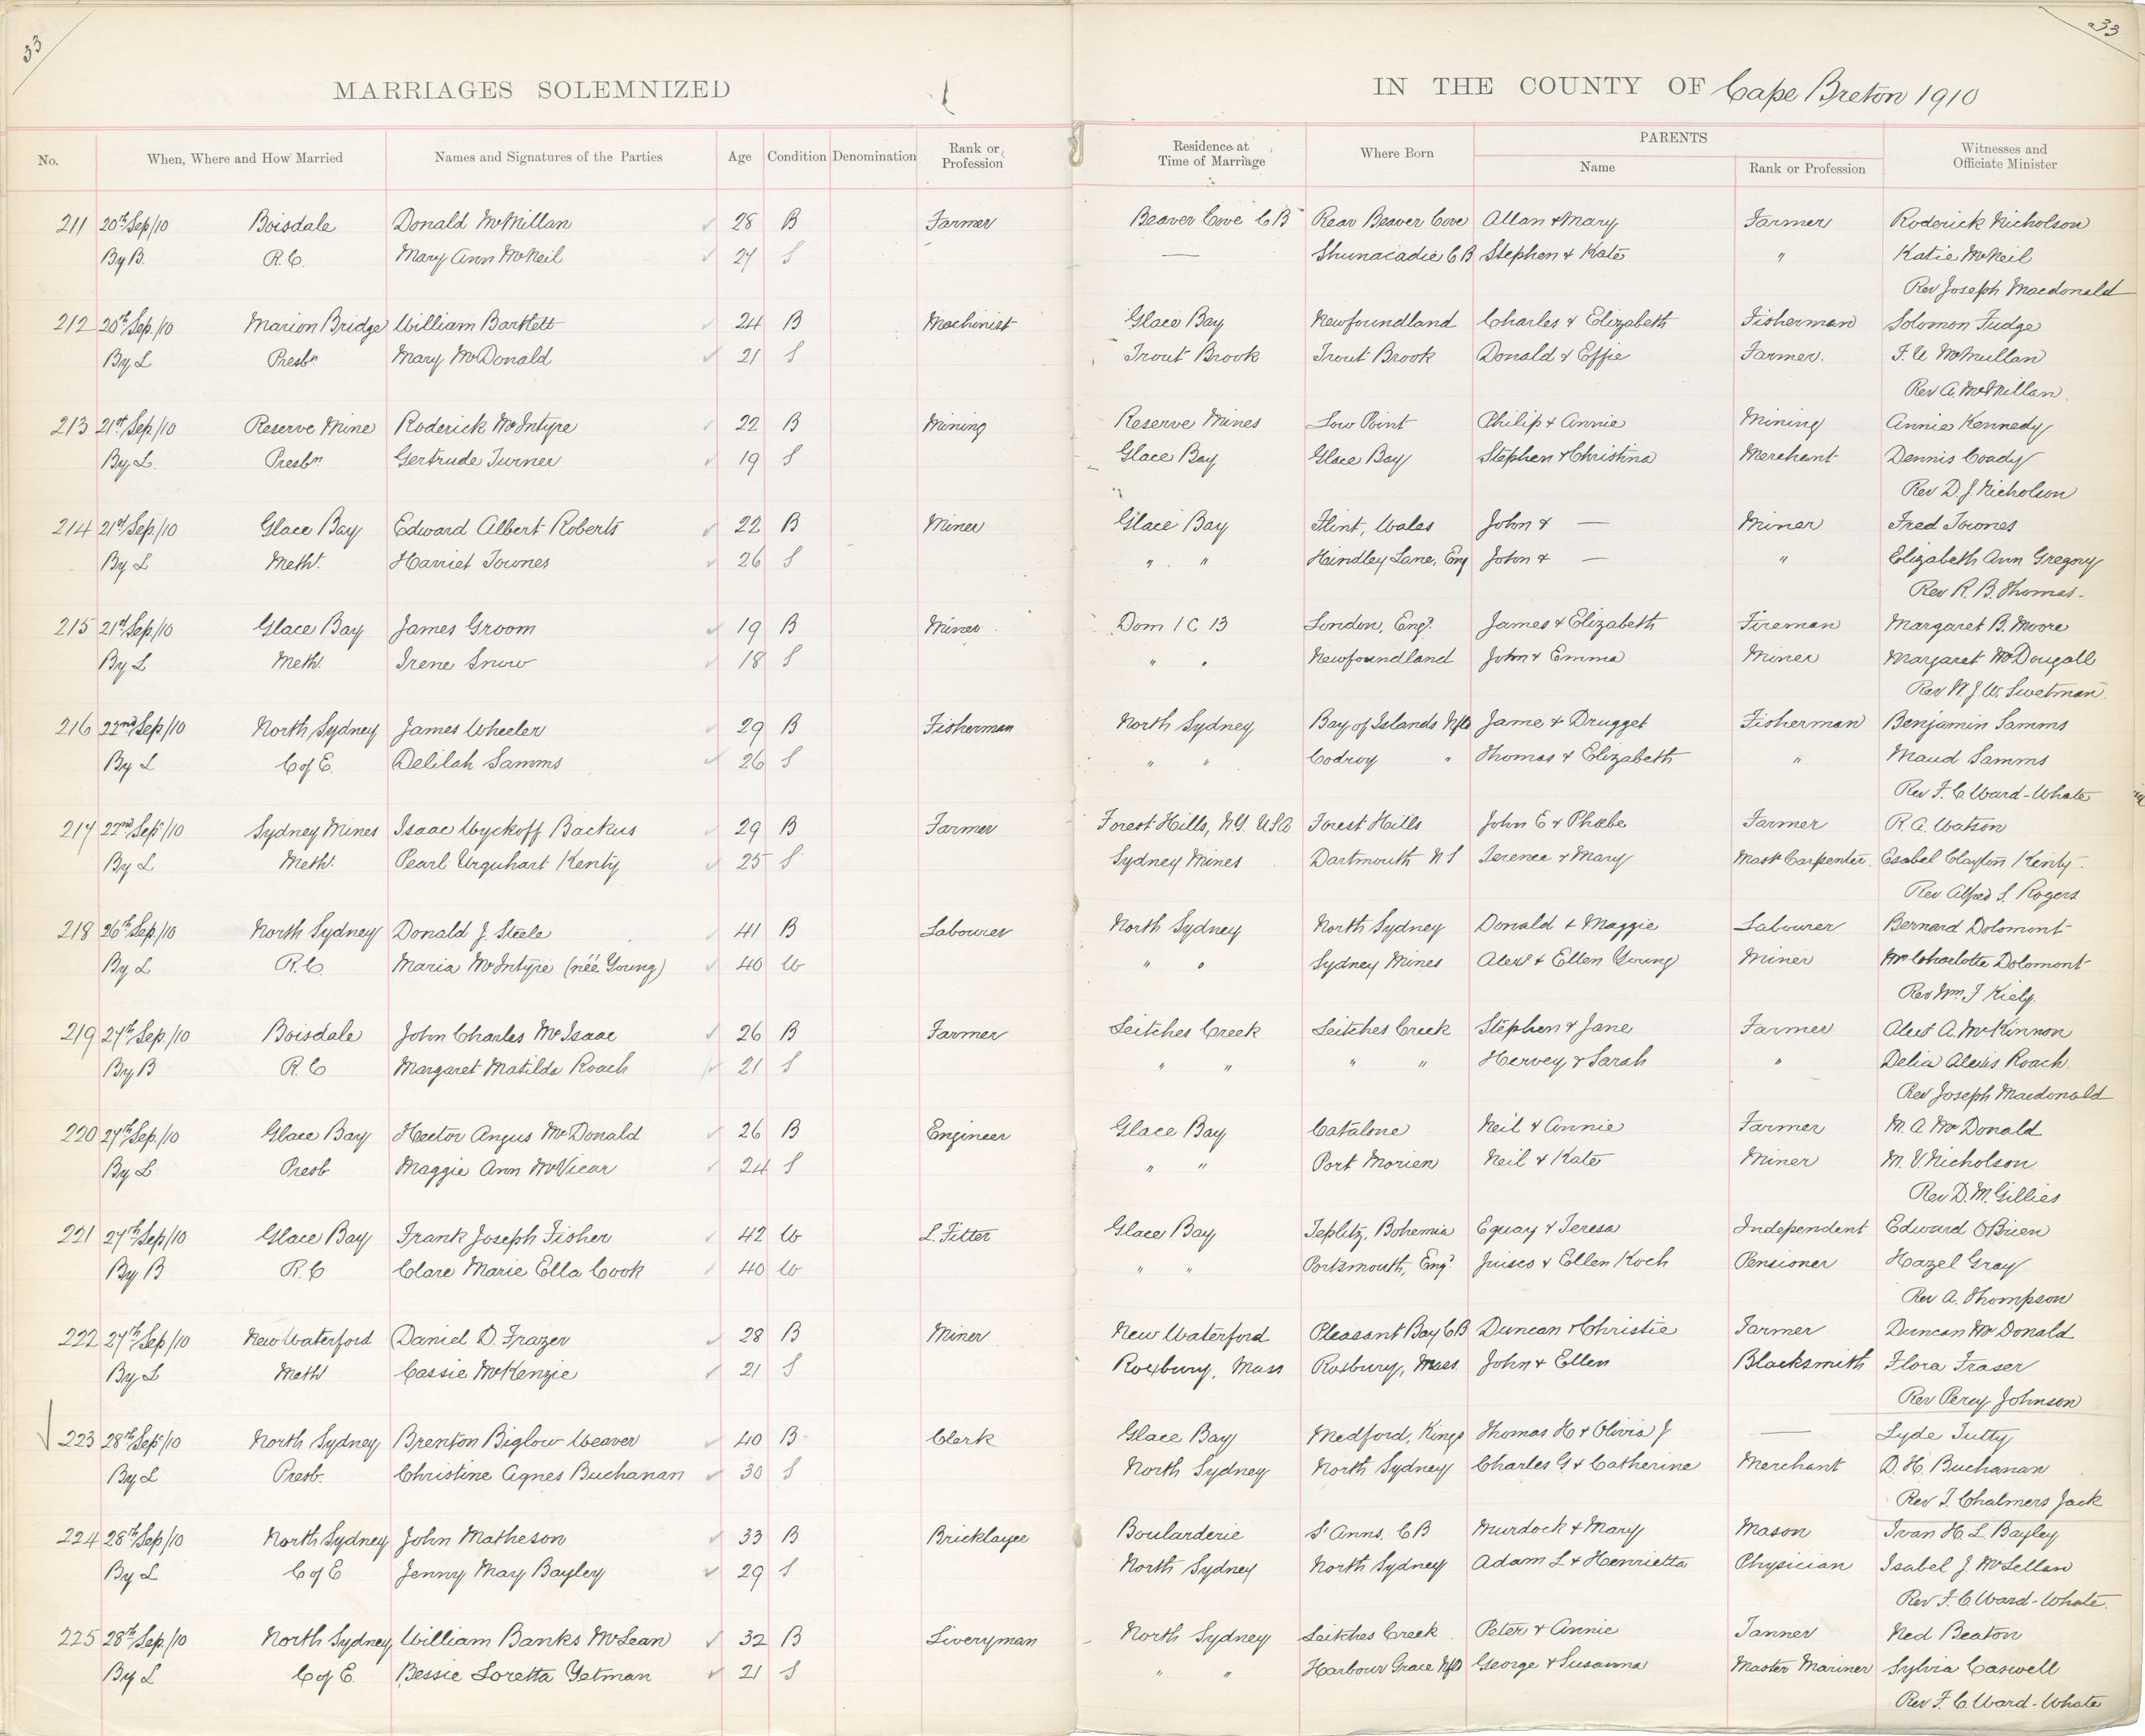 33
33
MARRIAGES SOLEMNIZED
IN THE COUNTY OF Cape Breton 1910
No. When, Where and How Married Names and Signatures of the Parties Age Condition Denomination Rank or Profession Residence at Time of Marriage Where Born PARENTS Name Rank or Profession Witnesses and Officiate Minister
211 20th Sep/10 Boisdale Donald McMillan 28 B Farmer Beaver Cove C B Rear Beaver Cove Allan & Mary Farmer Roderick Nicholson
By B. R.C. Mary Ann McNeil 27 S — Shunacadie C B Stephen & Kate " Katie McNeil
Rev Joseph Macdonald
212 20th Sep./10 Marion Bridge William Bartlett 24 B Machinist Glace Bay Newfoundland Charles & Elizabeth Fisherman Solomon Fudge
By L Presbn Mary McDonald 21 S Trout Brook Trout Brook Donald & Effie Farmer. F. A McMullan
Rev A. McMillan.
213 21st Sep/10 Reserve Mine Roderick McIntyre 22 B Mining Reserve Mines Low Point Philip & Annie Mining Annie Kennedy
By L. Presbn Gertrude Turner 19 S Glace Bay Glace Bay Stephen & Christina Merchant Dennis Coady
Rev D. J Nicholson
214 21st Sep/10 Glace Bay Edward Albert Roberts 22 B Miner Glace Bay Flint, Wales John & — Miner Fred Townes
By L Meth. Harriet Townes 26 S " " Hindley Lane, Eng John & — " Elizabeth Ann Gregory
Rev R. B. Thomas.
215 21st Sep/10 Glace Bay James Groom 19 B Miner Dom 1 C B London, Engd. James & Elizabeth Fireman Margaret B. Moore
By L Meth. Irene Snow 18 S " " Newfoundland John & Emma Miner Margaret McDougall
Rev W. J. W. Swetman.
216 22nd Sep/10 North Sydney James Wheeler 29 B Fisherman North Sydney Bay of Islands Nfld Jame & Drugget Fisherman Benjamin Samms
By L C of E. Delilah Samms 26 S " " Codroy " Thomas & Elizabeth " Maud Samms
Rev F. C Ward-Whate
217 22nd Sep/10 Sydney Mines Isaac Wyckoff Backus 29 B Farmer Forest Hills, N.Y. USA Forest Hills John E & Phœbe Farmer R. A. Watson
By L Meth. Pearl Urquhart Kenty 25 S Sydney Mines Dartmouth N S Terence & Mary Mast Carpenter. Esabel Clayton Kenty.
Rev Alfred S. Rogers
218 26th Sep/10 North Sydney Donald J. Steele 41 B Labourer North Sydney North Sydney Donald & Maggie Labourer Bernard Dolomont
By L R. C Maria McIntyre (née Young) 40 W " " Sydney Mines Alexr & Ellen Young Miner Mrs Charlotte Dolomont
Rev Wm J Kiely.
219 27th Sep./10 Boisdale John Charles McIsaac 26 B Farmer Leitches Creek Leitches Creek Stephen & Jane Farmer Alex A. McKinnon
By B R. C Margaret Matilda Roach 21 S " " " " Hervey & Sarah " Delia Alexis Roach
Rev Joseph Macdonald
220 27th Sep./10 Glace Bay Hector Angus McDonald 26 B Engineer Glace Bay Catalone Neil & Annie Farmer M. A McDonald
By L Presb Maggie Ann McVicar 24 S " " Port Morien Neil & Kate Miner M. V. Nicholson
Rev D. M. Gillies
221 27th Sep/10 Glace Bay Frank Joseph Fisher 42 W L. Fitter Glace Bay Teplitz, Bohemia Equay & Teresa Independent Edward OBrien
By B R. C Clare Marie Ella Cook 40 W " " Portsmouth, Engd & Ellen Koch Pensioner Hazel Gray
Rev A. Thompson
222 27th Sep/10 New Waterford Daniel D. Frazer 28 B Miner New Waterford Pleasant Bay C B Duncan & Christie Farmer Duncan McDonald
By L Meth Cassie McKenzie 21 S Roxbury, Mass Roxbury, Mass. John & Ellen Blacksmith Flora Fraser
Rev Percy Johnson
223 28th Sep/10 North Sydney Brenton Biglow Weaver 40 B Clerk Glace Bay Medford, Kings Thomas H & Olivia J — Lyde Tutty
By L Presb. Christine Agnes Buchanan 30 S North Sydney North Sydney Charles G. & Catherine Merchant D. H. Buchanan
Rev T. Chalmers Jack
224 28th Sep/10 North Sydney John Matheson 33 B Bricklayer Boularderie St Anns. C B Murdock & Mary Mason Ivan H. L Bayley
By L C of E Jenny May Bayley 29 S North Sydney North Sydney Adam L & Henrietta Physician Isabel J McLellan
Rev F. C Ward-Whate.
225 28th Sep./10 North Sydney William Banks McLean 32 B Liveryman North Sydney Leitches Creek Peter & Annie Tanner Ned Beaton
By L C of E. Bessie Loretta Yetman 21 S " " Harbour Grace Nfld George & Susanna Master Mariner Sylvia Caswell
Rev F. C. Ward-Whate